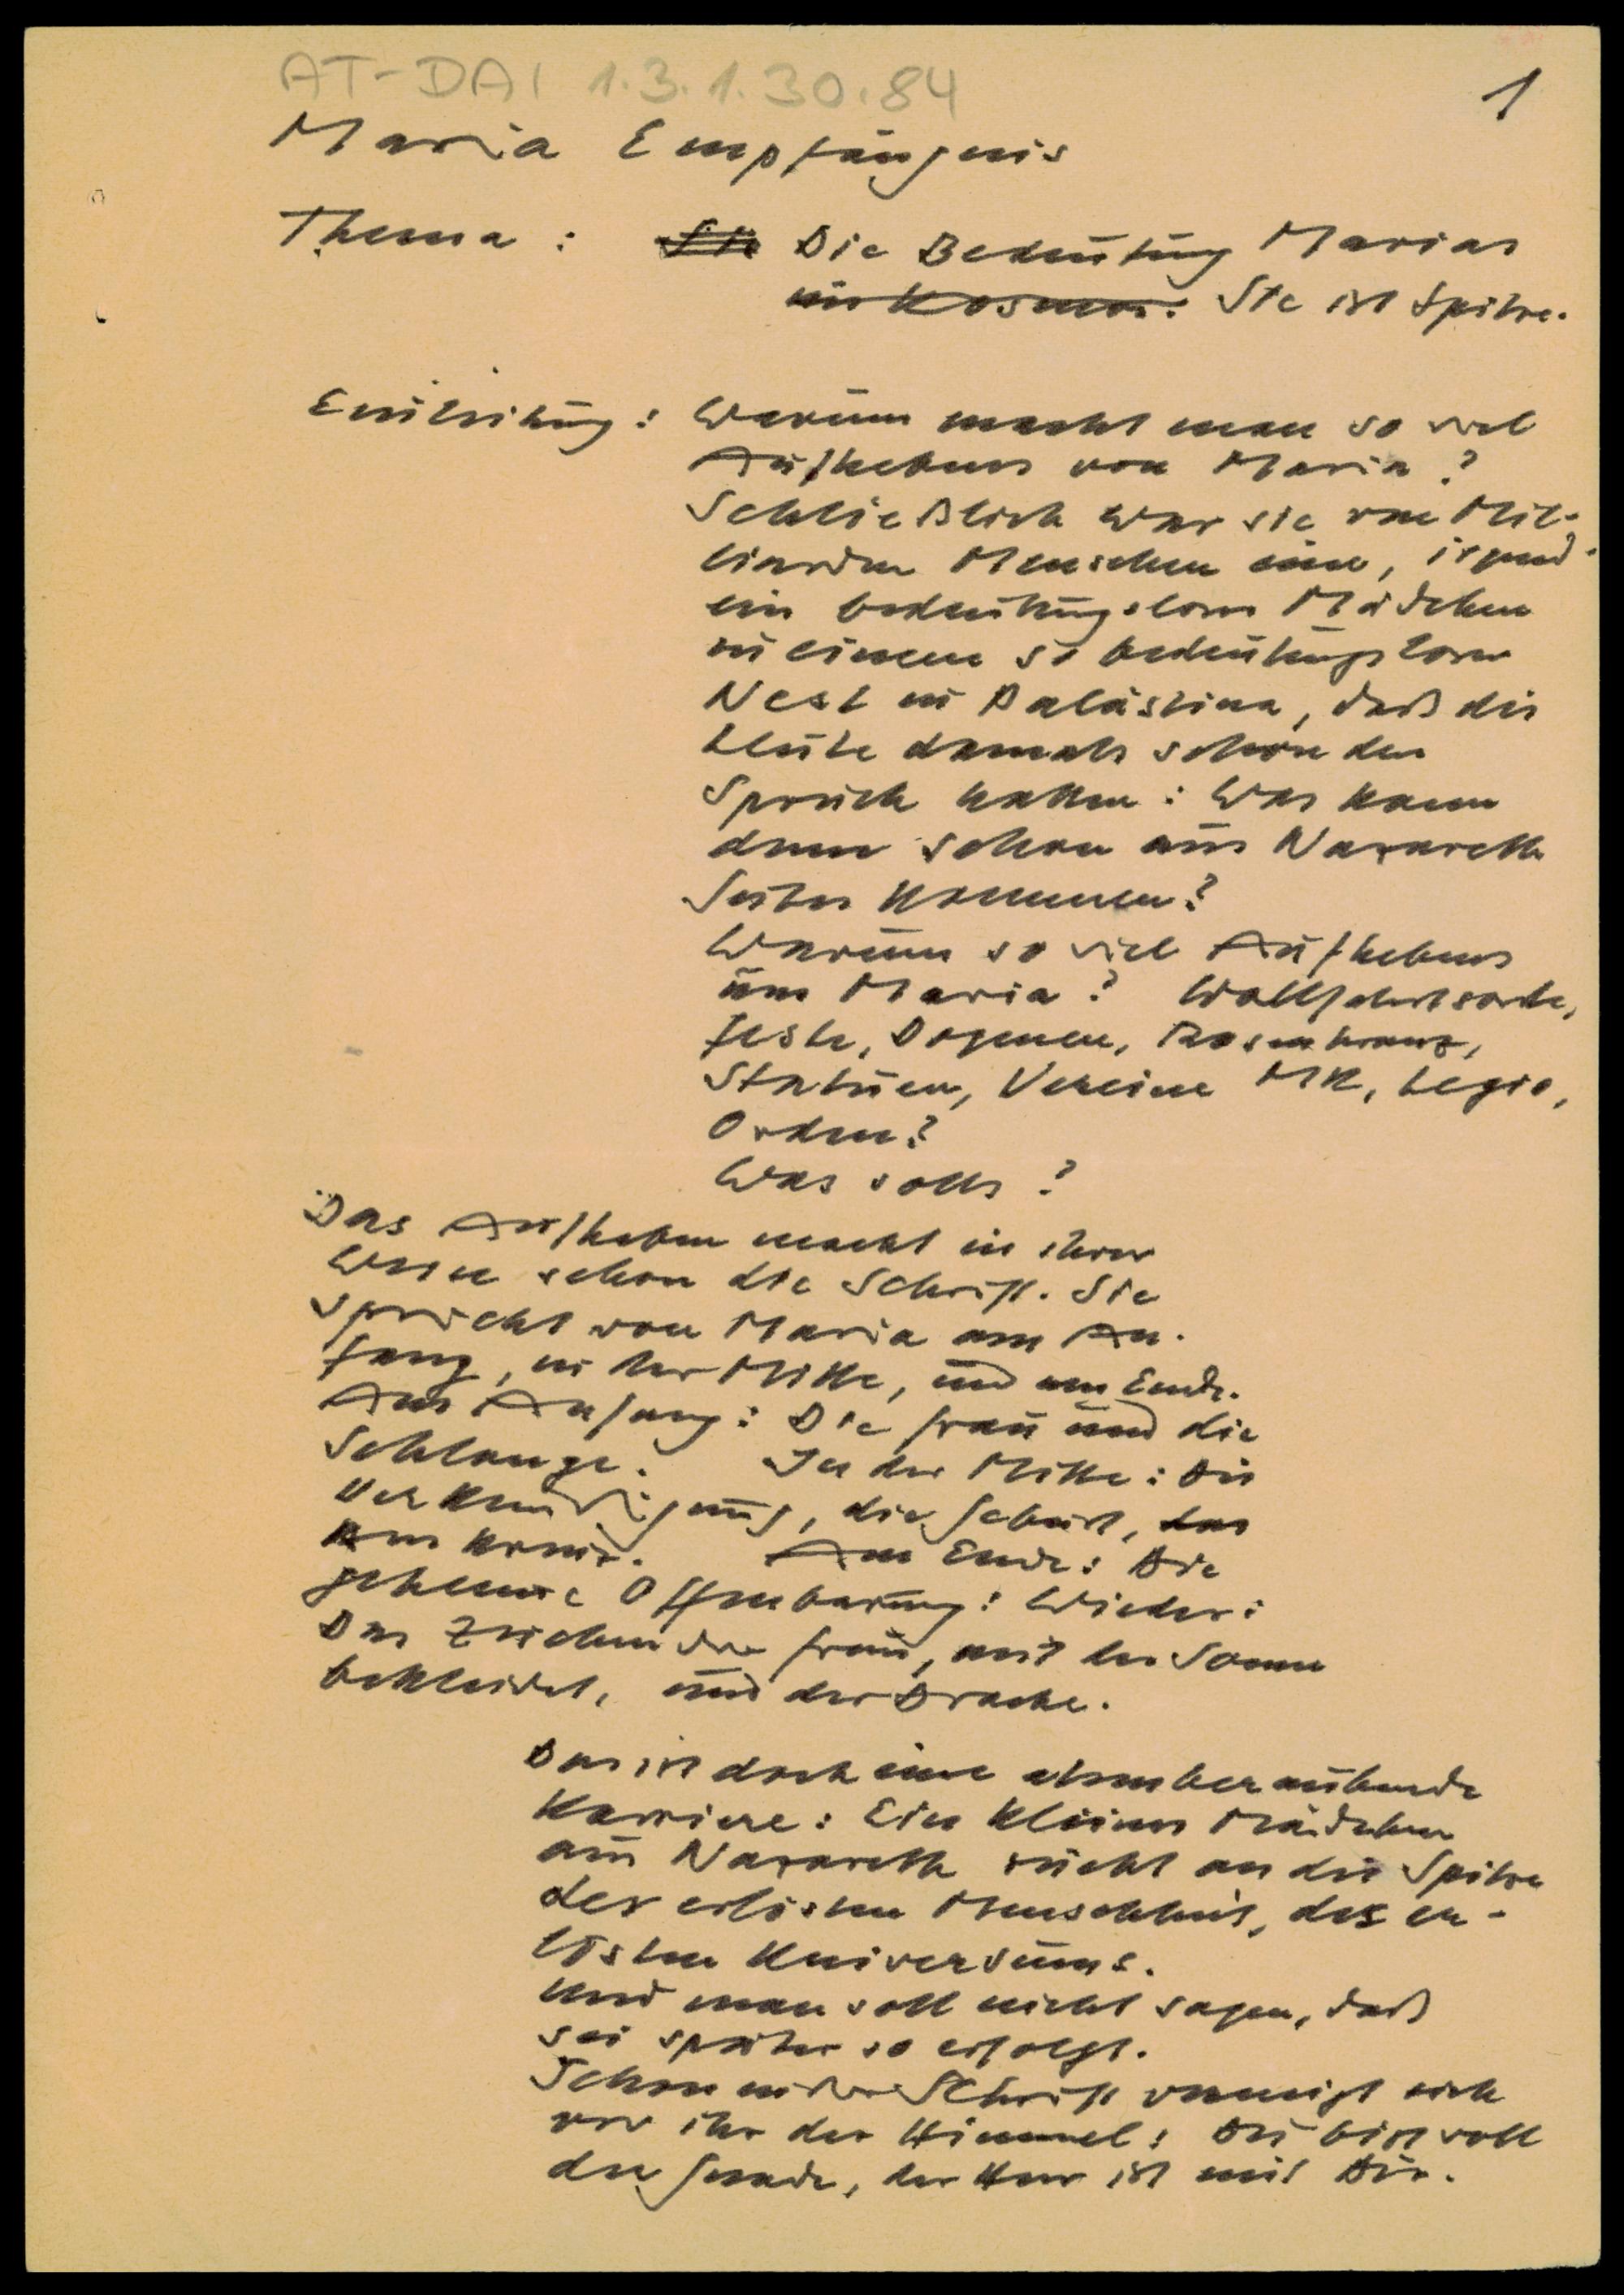 AT-DAI 1.3.1.30.84
1
Maria Empfängnis
Thema: Die Bedeutung Marias
im Kosmos. Sie ist Spitze.
Einleitung: Warum macht man so viel
Aufhebens von Maria?
Schließlich war sie von Mil-
liarden Menschen einer, irgend-
ein bedeutungsloses Mädchen
in einem so bedeutungslosen
Nest in Palästina, daß die
Leute damals schon den
Spruch hatten: Was kann
denn schon aus Nazareth
Gutes kommen?
Warum so viel Aufhebens
um Maria? Wallfahrtsorte,
Feste, Dogmen, Rosenkranz,
Statuen, Vereine MK, Legio,
Orden?
Was solls?
Das Aufheben macht in ihrer
Weise schon die Schrift. Sie
spricht von Maria am An-
fang, in der Mitte, und am Ende.
Am Anfang: Die Frau und die
Schlange. In der Mitte: Die
Verkündigung, die Geburt, das
Am Kreuz. Am Ende: Die
geheime Offenbarung: Wieder:
Das Zeichen der Frau, mit der Sonne
bekleidet, und der Drache.
Das ist doch eine atemberaubende
Karriere: Ein kleines Mädchen
aus Nazareth rückt an die Spitze
der erlösten Menschheit, des er-
lösten Universums.
Und man soll nicht sagen, daß
sei später so erfolgt.
Schon in der Schrift verneigt sich
vor ihr der Himmel: Du bist voll
der Gnade, der Herr ist mit Dir.